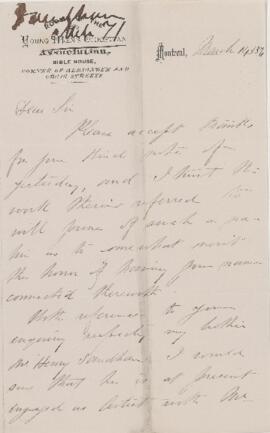 Young Men's Christian
Association,
BIBLE HOUSE,
CORNER OF ALEXANDER AND
CRAIG STREETS
Montreal, March 14
Dear Sir
Please accept thanks
for your kind note of
yesterday, and I trust the
work therein referred to
will prove of such a na-
ture as to somewhat merit
the honor of having your name
connected therewith.
With reference to your
enquiry respecting my brother
Mr Henry Sandham I would
say that he is at present
engaged as Artist with Mr